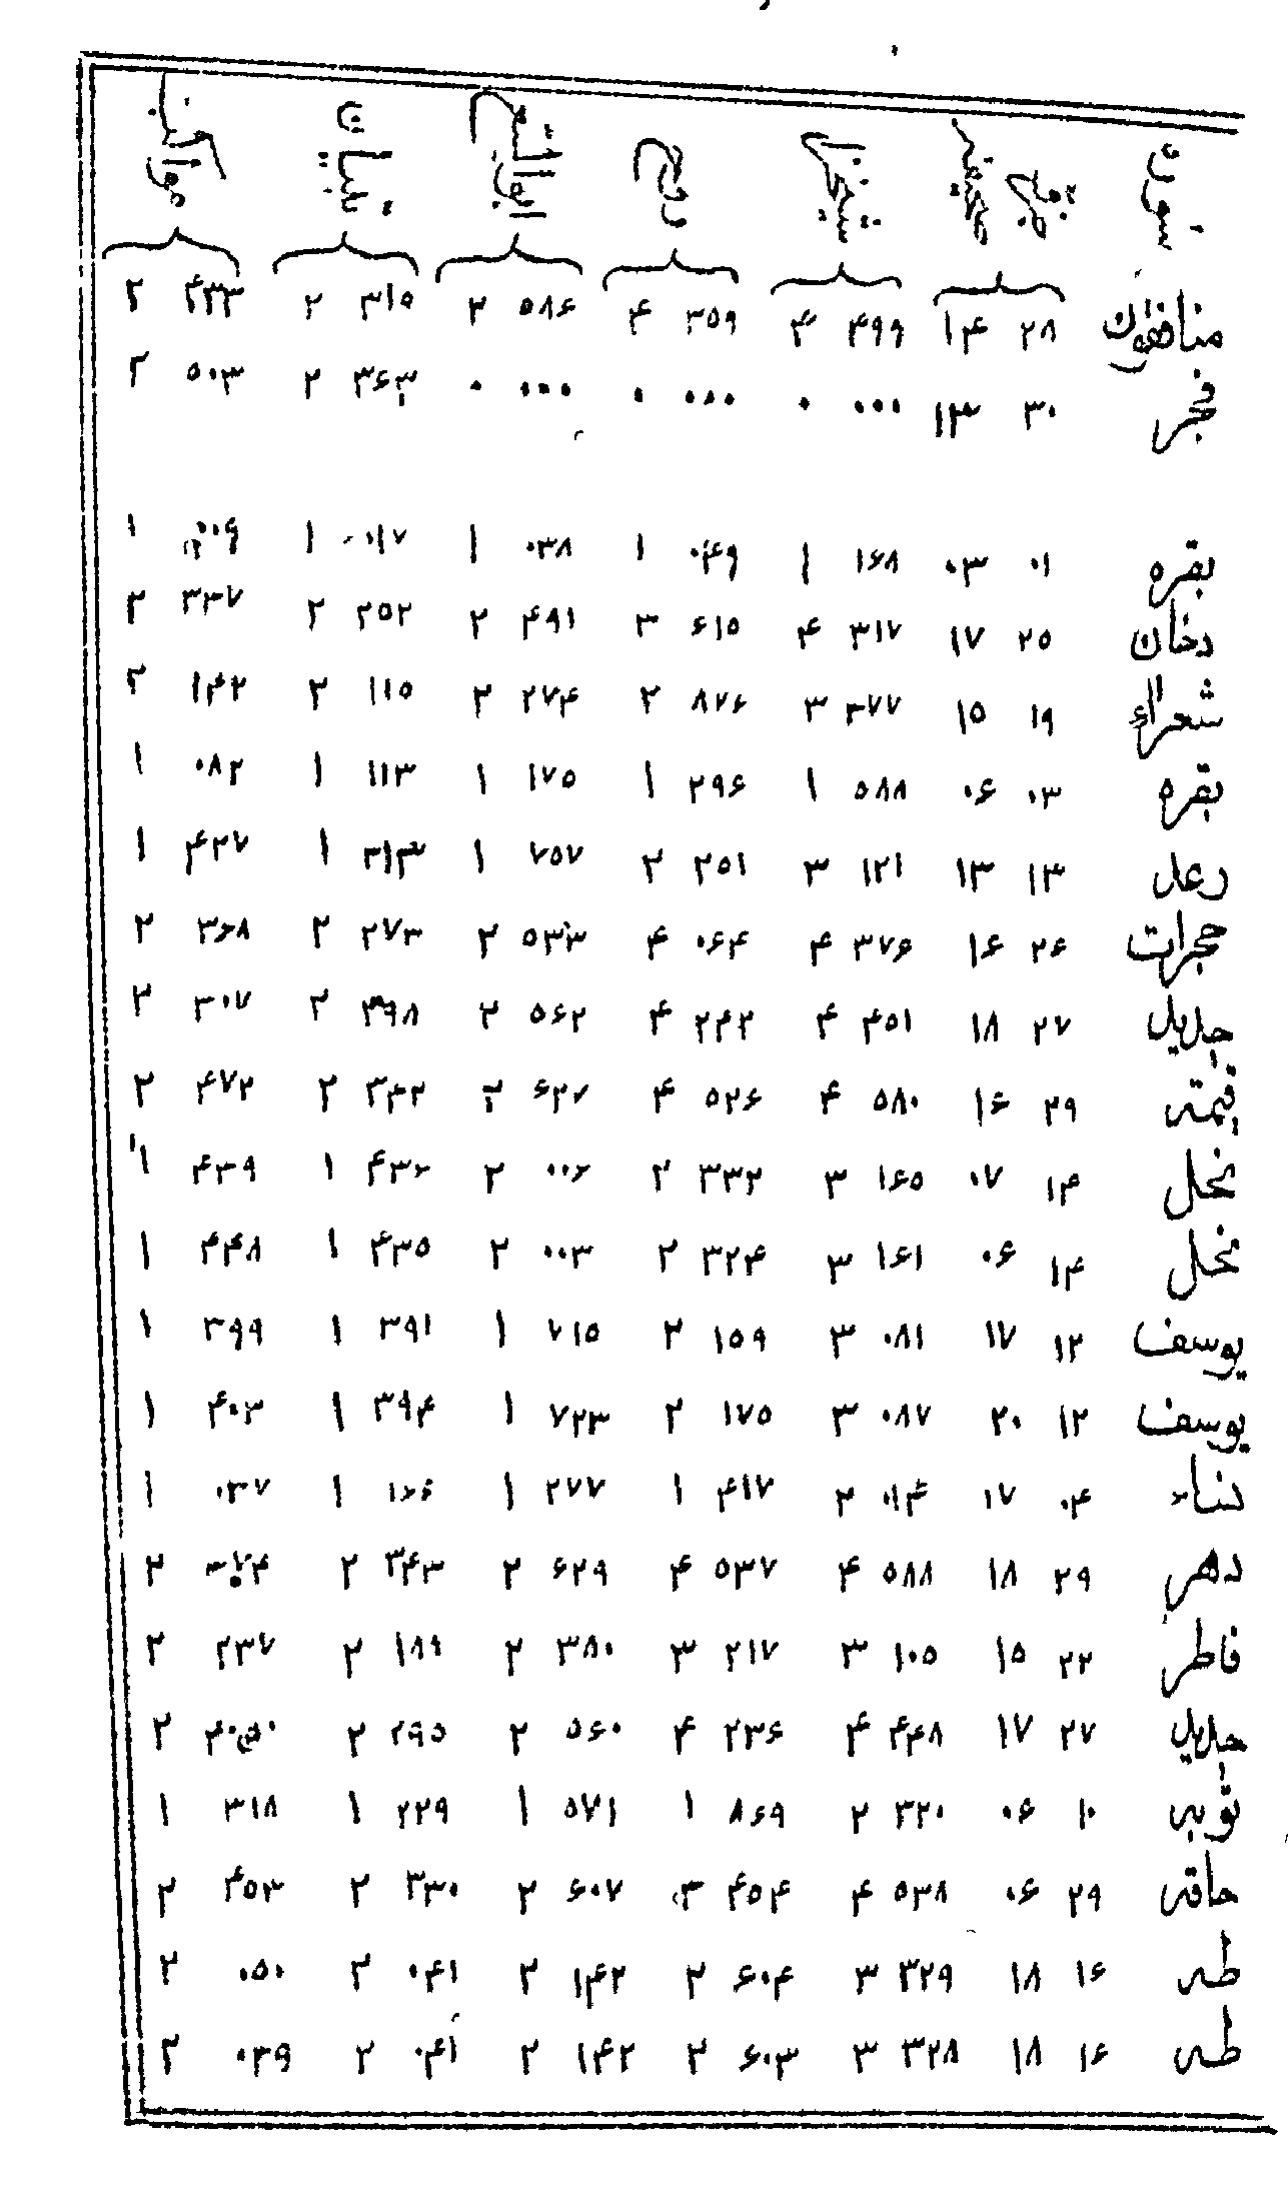 منافقون ۲۸ ۱۴ ۴۹۹ ۴ ۳۵۹ ۴ ۵۸۶ ۲ ۳۱۵ ۲ ۴۳۳ ۲
فجر ۳۰ ۱۳ ۰۰۰ ۰ ۰۰۰ ۰ ۰۰۰ ۰ ۳۶۳ ۲ ۵۰۳ ۲
بقره ۰۱ ۰۳ ۱۶۸ ۱ ۰۴۹ ۱ ۰۳۸ ۱ ۰۱۷ ۱ ۱
دخان ۲۵ ۱۷ ۳۱۷ ۴ ۶۱۵ ۳ ۴۹۱ ۲ ۲۵۲ ۲ ۳۳۷ ۲
شعراء ۱۹ ۱۵ ۳۷۷ ۳ ۸۷۶ ۲ ۲۷۴ ۲ ۱۱۵ ۲ ۱۴۲ ۲
بقره ۰۳ ۰۶ ۵۸۸ ۱ ۲۹۶ ۱ ۱۷۵ ۱ ۱۱۳ ۱ ۰۸۲ ۱
رعد ۱۳ ۱۳ ۱۲۱ ۳ ۲۵۱ ۲ ۷۵۷ ۱ ۳۱۳ ۱ ۴۲۷ ۱
حجرات ۲۶ ۱۶ ۳۷۶ ۴ ۰۶۴ ۴ ۵۳۳ ۲ ۲۷۳ ۲ ۳۶۸ ۲
حدید ۲۷ ۱۸ ۴۵۱ ۴ ۲۴۲ ۴ ۵۶۲ ۲ ۳۹۸ ۲ ۳۰۷ ۲
قیمة ۲۹ ۱۶ ۵۸۰ ۴ ۵۲۶ ۴ ۶۲۷ ۲ ۳۴۲ ۲ ۴۷۲ ۲
نحل ۱۴ ۰۷ ۱۶۵ ۳ ۳۳۲ ۲ ۰۰۶ ۲ ۴۳۶ ۱ ۴۳۹ ۱
نحل ۱۴ ۰۶ ۱۶۱ ۳ ۳۲۴ ۲ ۰۰۳ ۲ ۴۳۵ ۱ ۴۴۸ ۱
یوسف ۱۲ ۱۷ ۰۸۱ ۳ ۱۵۹ ۲ ۷۱۵ ۱ ۳۹۱ ۱ ۳۹۹ ۱
یوسف ۱۲ ۲۰ ۰۸۷ ۳ ۱۷۵ ۲ ۷۲۳ ۱ ۳۹۴ ۱ ۴۰۳ ۱
نساء ۰۴ ۱۷ ۰۱۴ ۲ ۴۱۷ ۱ ۲۷۷ ۱ ۱۶۶ ۱ ۰۳۷ ۱
دهر ۲۹ ۱۸ ۵۸۸ ۴ ۵۳۷ ۴ ۶۲۹ ۲ ۳۴۳ ۲ ۲
فاطر ۲۲ ۱۵ ۱۰۵ ۳ ۲۱۷ ۳ ۳۸۰ ۲ ۱۸۹ ۲ ۲۳۷ ۲
حدید ۲۷ ۱۷ ۴۴۸ ۴ ۲۳۶ ۴ ۵۶۰ ۲ ۲۹۵ ۲ ۲
توبه ۱۰ ۰۶ ۳۲۰ ۲ ۸۶۹ ۱ ۵۷۱ ۱ ۲۲۹ ۱ ۳۱۸ ۱
حاقه ۲۹ ۰۶ ۵۳۸ ۴ ۴۵۴ ۳ ۶۰۷ ۲ ۳۳۰ ۲ ۴۵۳ ۲
طه ۱۶ ۱۸ ۳۲۹ ۳ ۶۰۴ ۲ ۱۴۲ ۲ ۰۴۱ ۲ ۰۵۰ ۲
طه ۱۶ ۱۸ ۳۲۸ ۳ ۶۰۳ ۲ ۱۴۲ ۲ ۰۴۱ ۲ ۰۳۹ ۲